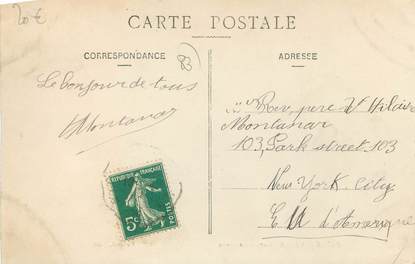 20 €
CARTE POSTALE
CORRESPONDANCE
83
ADRESSE
Le bonjour de tous
Montanar
Rev. pere St Hilaire
Montanar
103, Park street, 103
New York City
E U d'Amerique
REPUBLIQUE FRANÇAISE
5c
POSTES